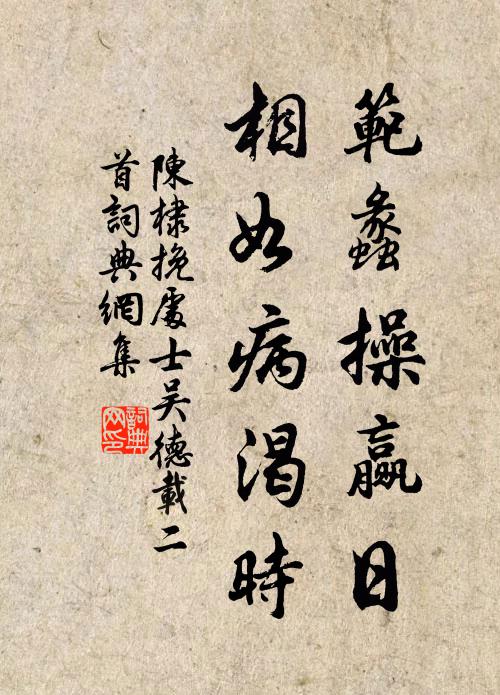 範蠡操贏日
相如病渴時
陳棣挽處士吳德載二
首詞典網集
詞典
网印